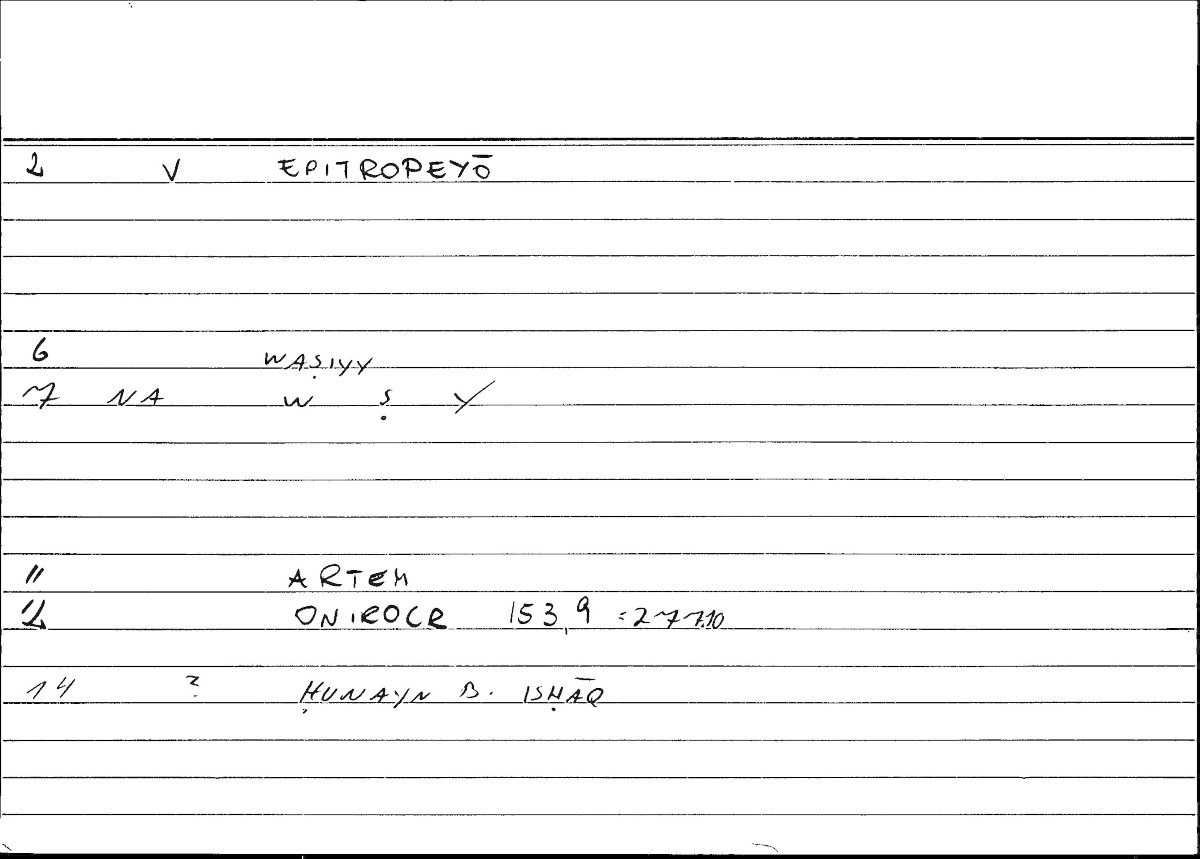 2 V EPITROPEYŌ
6 WAṢIYY
7 NA W Ṣ Y
11 ARTEM
12 ONIROCR 153,9 = 277,10
14 ? ḤUNAYN B. ISḤĀQ